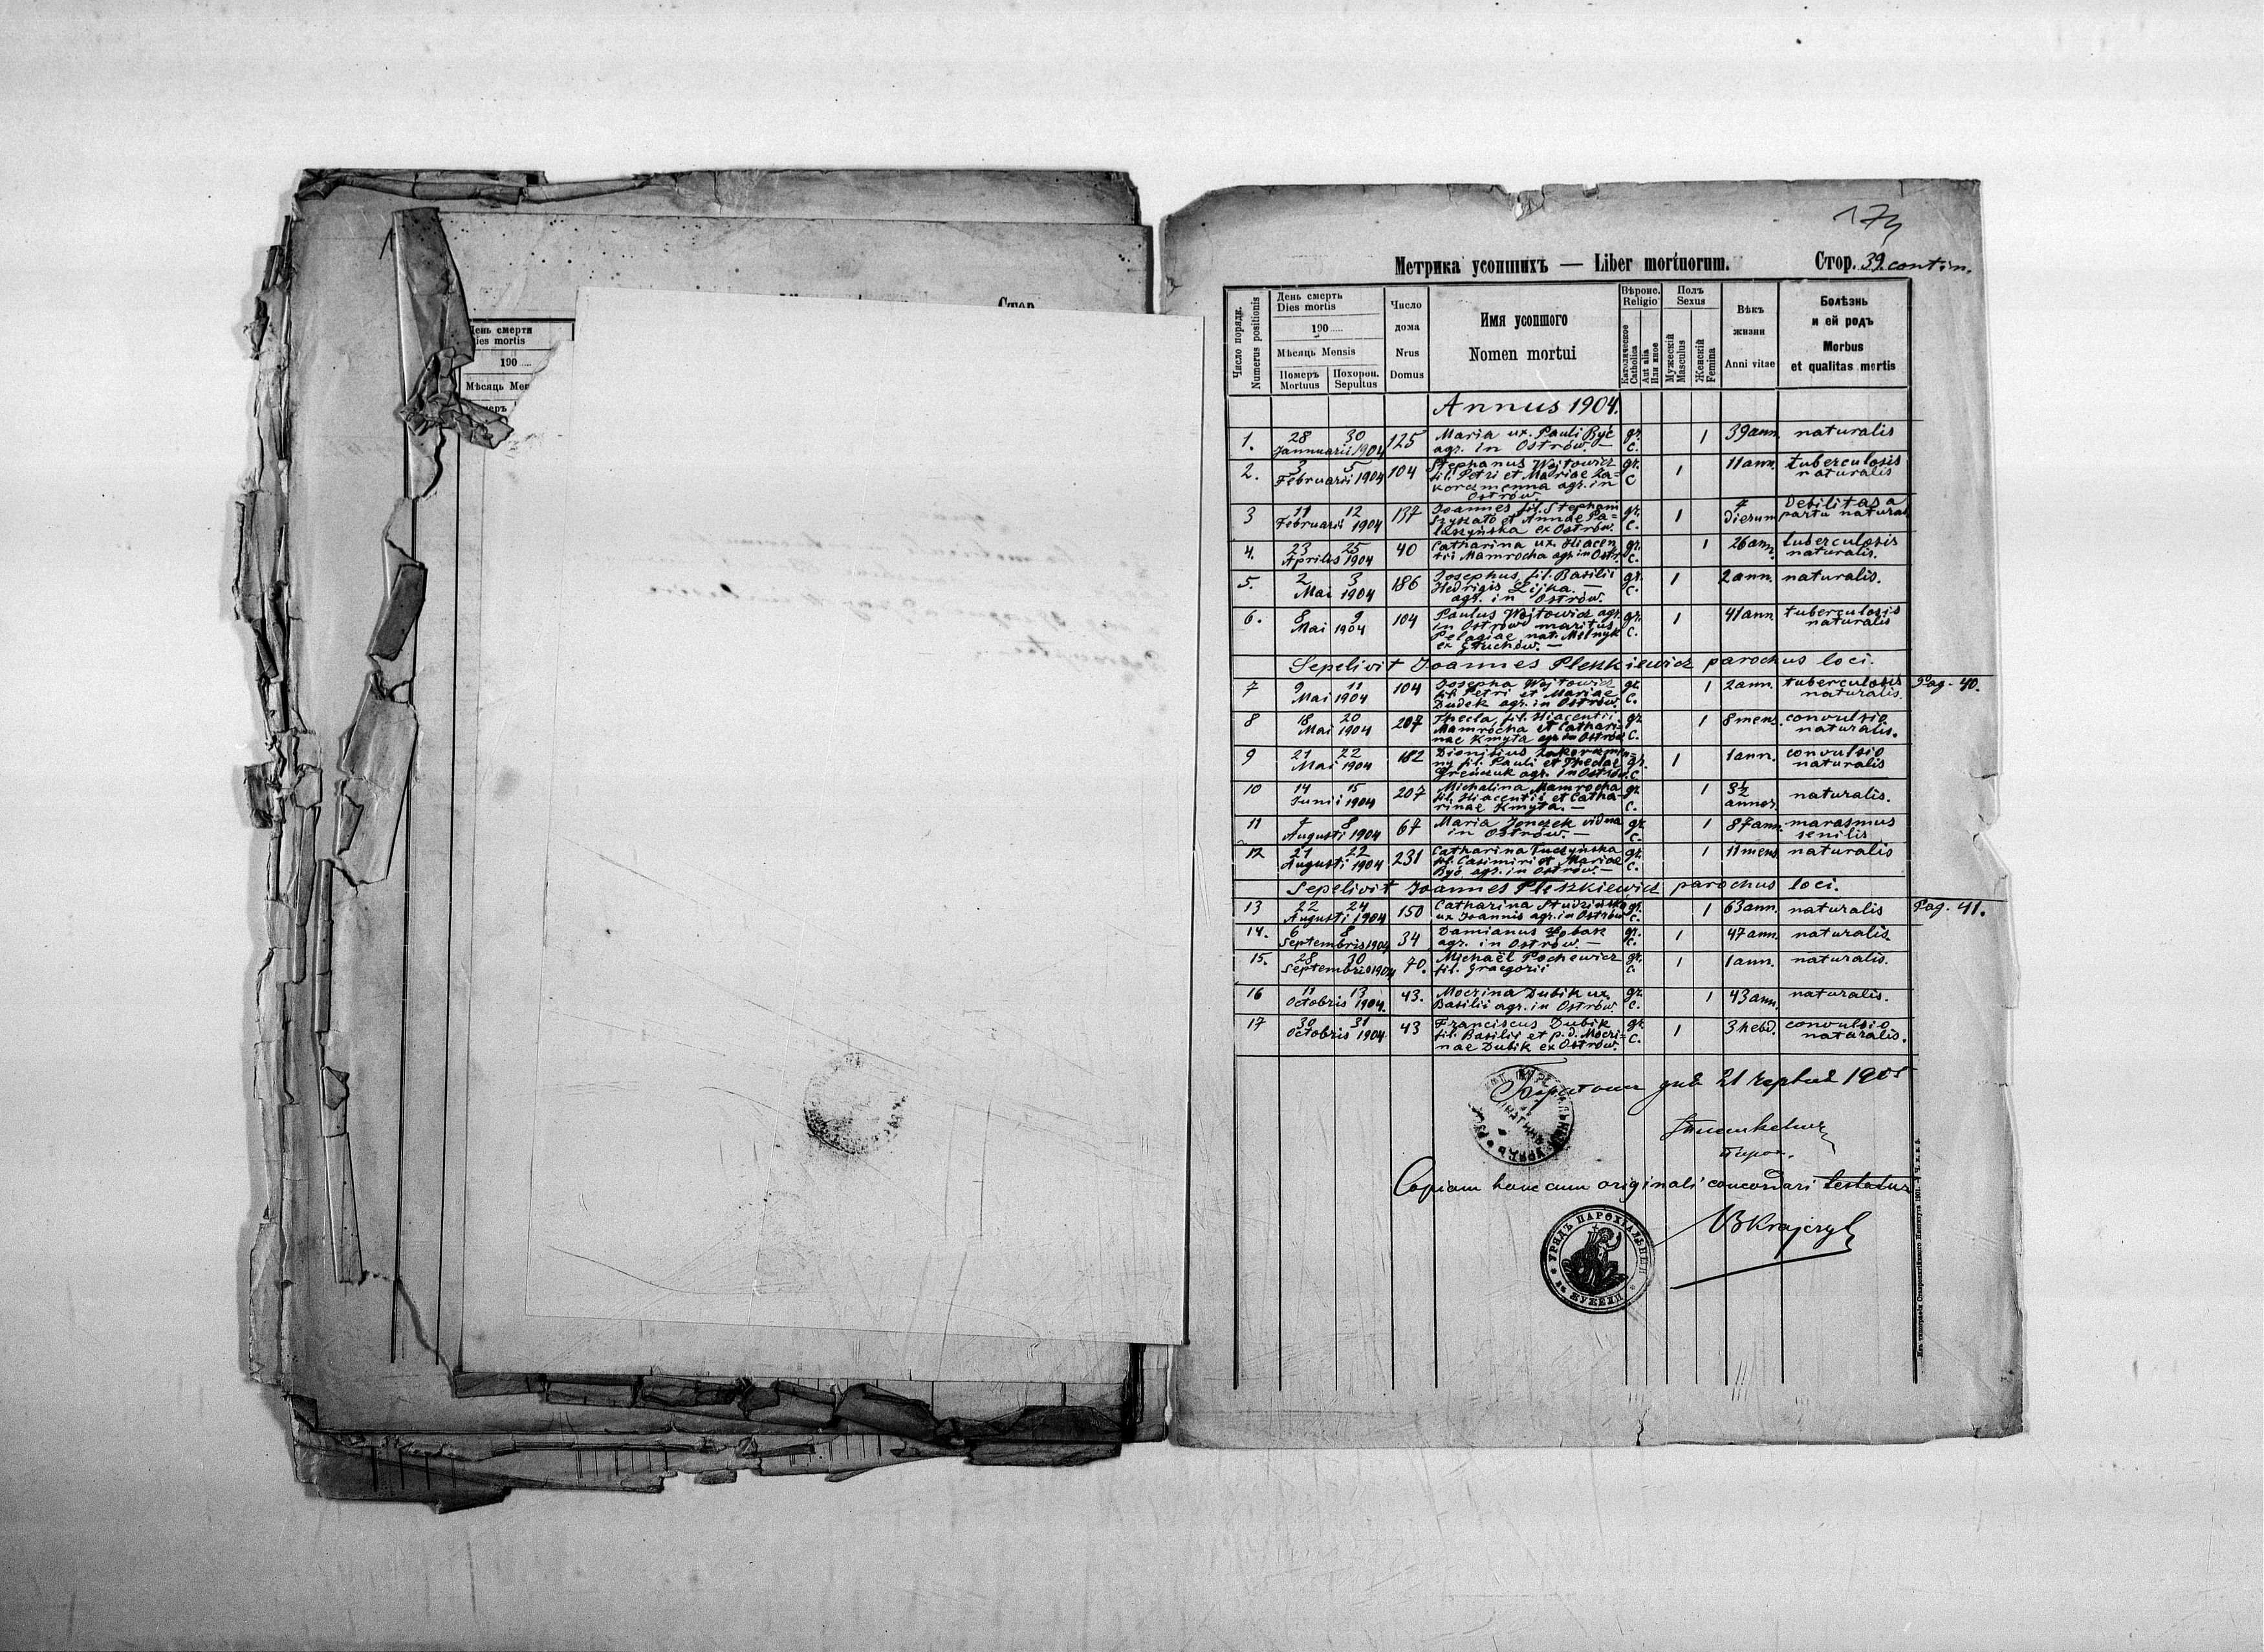 174
Метрика усопшихъ — Liber mortuorum. Стор. 39. contin.
Стор.
День смерти
Dies mortis
190
Мѣсяць
Число порядк.
Numerus positionis
День смерть
Dies mortis
190
Мѣсяць Mensis
Померъ Mortuus
Похорон. Sepultus
Число дома
Nrus Domus
Имя усопшого
Nomen mortui
Вѣроис.
Religio
Католическое
Catholica
Aut alia
Или иное
Полъ
Sexus
Мужескій
Masculus
Женскій
Femina
Вѣкъ жизни
Anni vitae
Болѣзнь и ей родъ
Morbus et qualitas mortis
Annus 1904.
1. 28 30 Januarii 1904 125 Maria ux. Pauli Być agr. in Ostrów. — gr. c. 1 39 ann. naturalis
2. 3 5 Februarii 1904 104 Stephanus Wojtowicz fil. Petri et Mariae Zakorczmenna agr. in Ostrów. gr. c 1 11 ann. tuberculosis naturalis
3 11 12 Februarii 1904 137 Joannes fil. Stephani et Annae ex Ostrów. gr. c. 1 dierum Debilitas a partu natural
4. 23 25 Aprilis 1904 40 Catharina ux. Hiacentii Mamrocha agr. in Ostr. gr. c. 1 26 ann. tuberculosis naturalis.
5. 2 3 Mai 1904 186 Josephus fil. Basilii Hedrigis Lijka. — agr. in Ostrów. gr. c. 1 2 ann. naturalis.
6. 8 9 Mai 1904 104 Paulus Wojtowicz agr. in Ostrów maritus Pelagiae nat. Melnyk ex Głuchów. — gr. c. 1 41 ann tuberculosis naturalis
Sepelivit Joannes Pleszkiewicz parochus loci.
7 9 11 Mai 1904 104 Josepha Wojtowicz fil. Petri et Mariae Dudek agr. in Ostrów. gr. c. 1 2 ann. tuberculosis naturalis. Pag. 40.
8 18 20 Mai 1904 207 Thecla, fil. Hiacentii Mamrocha et Catharinae Kmyta agr. in Ostrów gr. c. 1 8 mens. convulsio naturalis.
9 21 22 Mai 1904 182 Dionisius Zakorczmenny fil. Pauli et Theclae agr. in Ostrów. gr. c. 1 1 ann. convulsio naturalis
10 14 15 Junii 1904 207 Michalina Mamrocha fil. Hiacentii et Catharinae Kmyta. — gr. c. 1 3½ annor. naturalis.
11 7 8 Augusti 1904 67 Maria Jonczek vidua in Ostrów. — gr. c. 1 87 ann. marasmus senilis
12 21 22 Augusti 1904 231 Catharina Tuczyńska fil. Casimiri et Mariae Być agr. in Ostrów. — gr. c. 1 11 mens naturalis
Sepelivit Joannes Pleszkiewicz parochus loci.
13 22 24 Augusti 1904 150 Catharina Studzińska ux Joannis agr. in Ostrów gr. c. 1 63 ann. naturalis Pag. 41.
14. 6 8 Septembris 1904 34 Damianus agr. in Ostrów. — gr. c. 1 47 ann. naturalis
15. 28 30 Septembris 1904 70. Michaël Pochewicz fil. Graegorii gr. c. 1 1 ann. naturalis.
16 11 13 Octobris 1904. 43. Mocrina Dubik ux. Basilii agr. in Ostrów. gr. c. 1 43 ann. naturalis.
17 30 31 Octobris 1904 43 Franciscus Dubik fil. Basilii et p.d. Mocrinae Dubik ex Ostrów. gr. c. 1 3 hebd. convulsio naturalis.
21 1905
Copiam hanc cum originali concordari testatur
УРЯДЪ ПАРОХІАЛЬНЫЙ